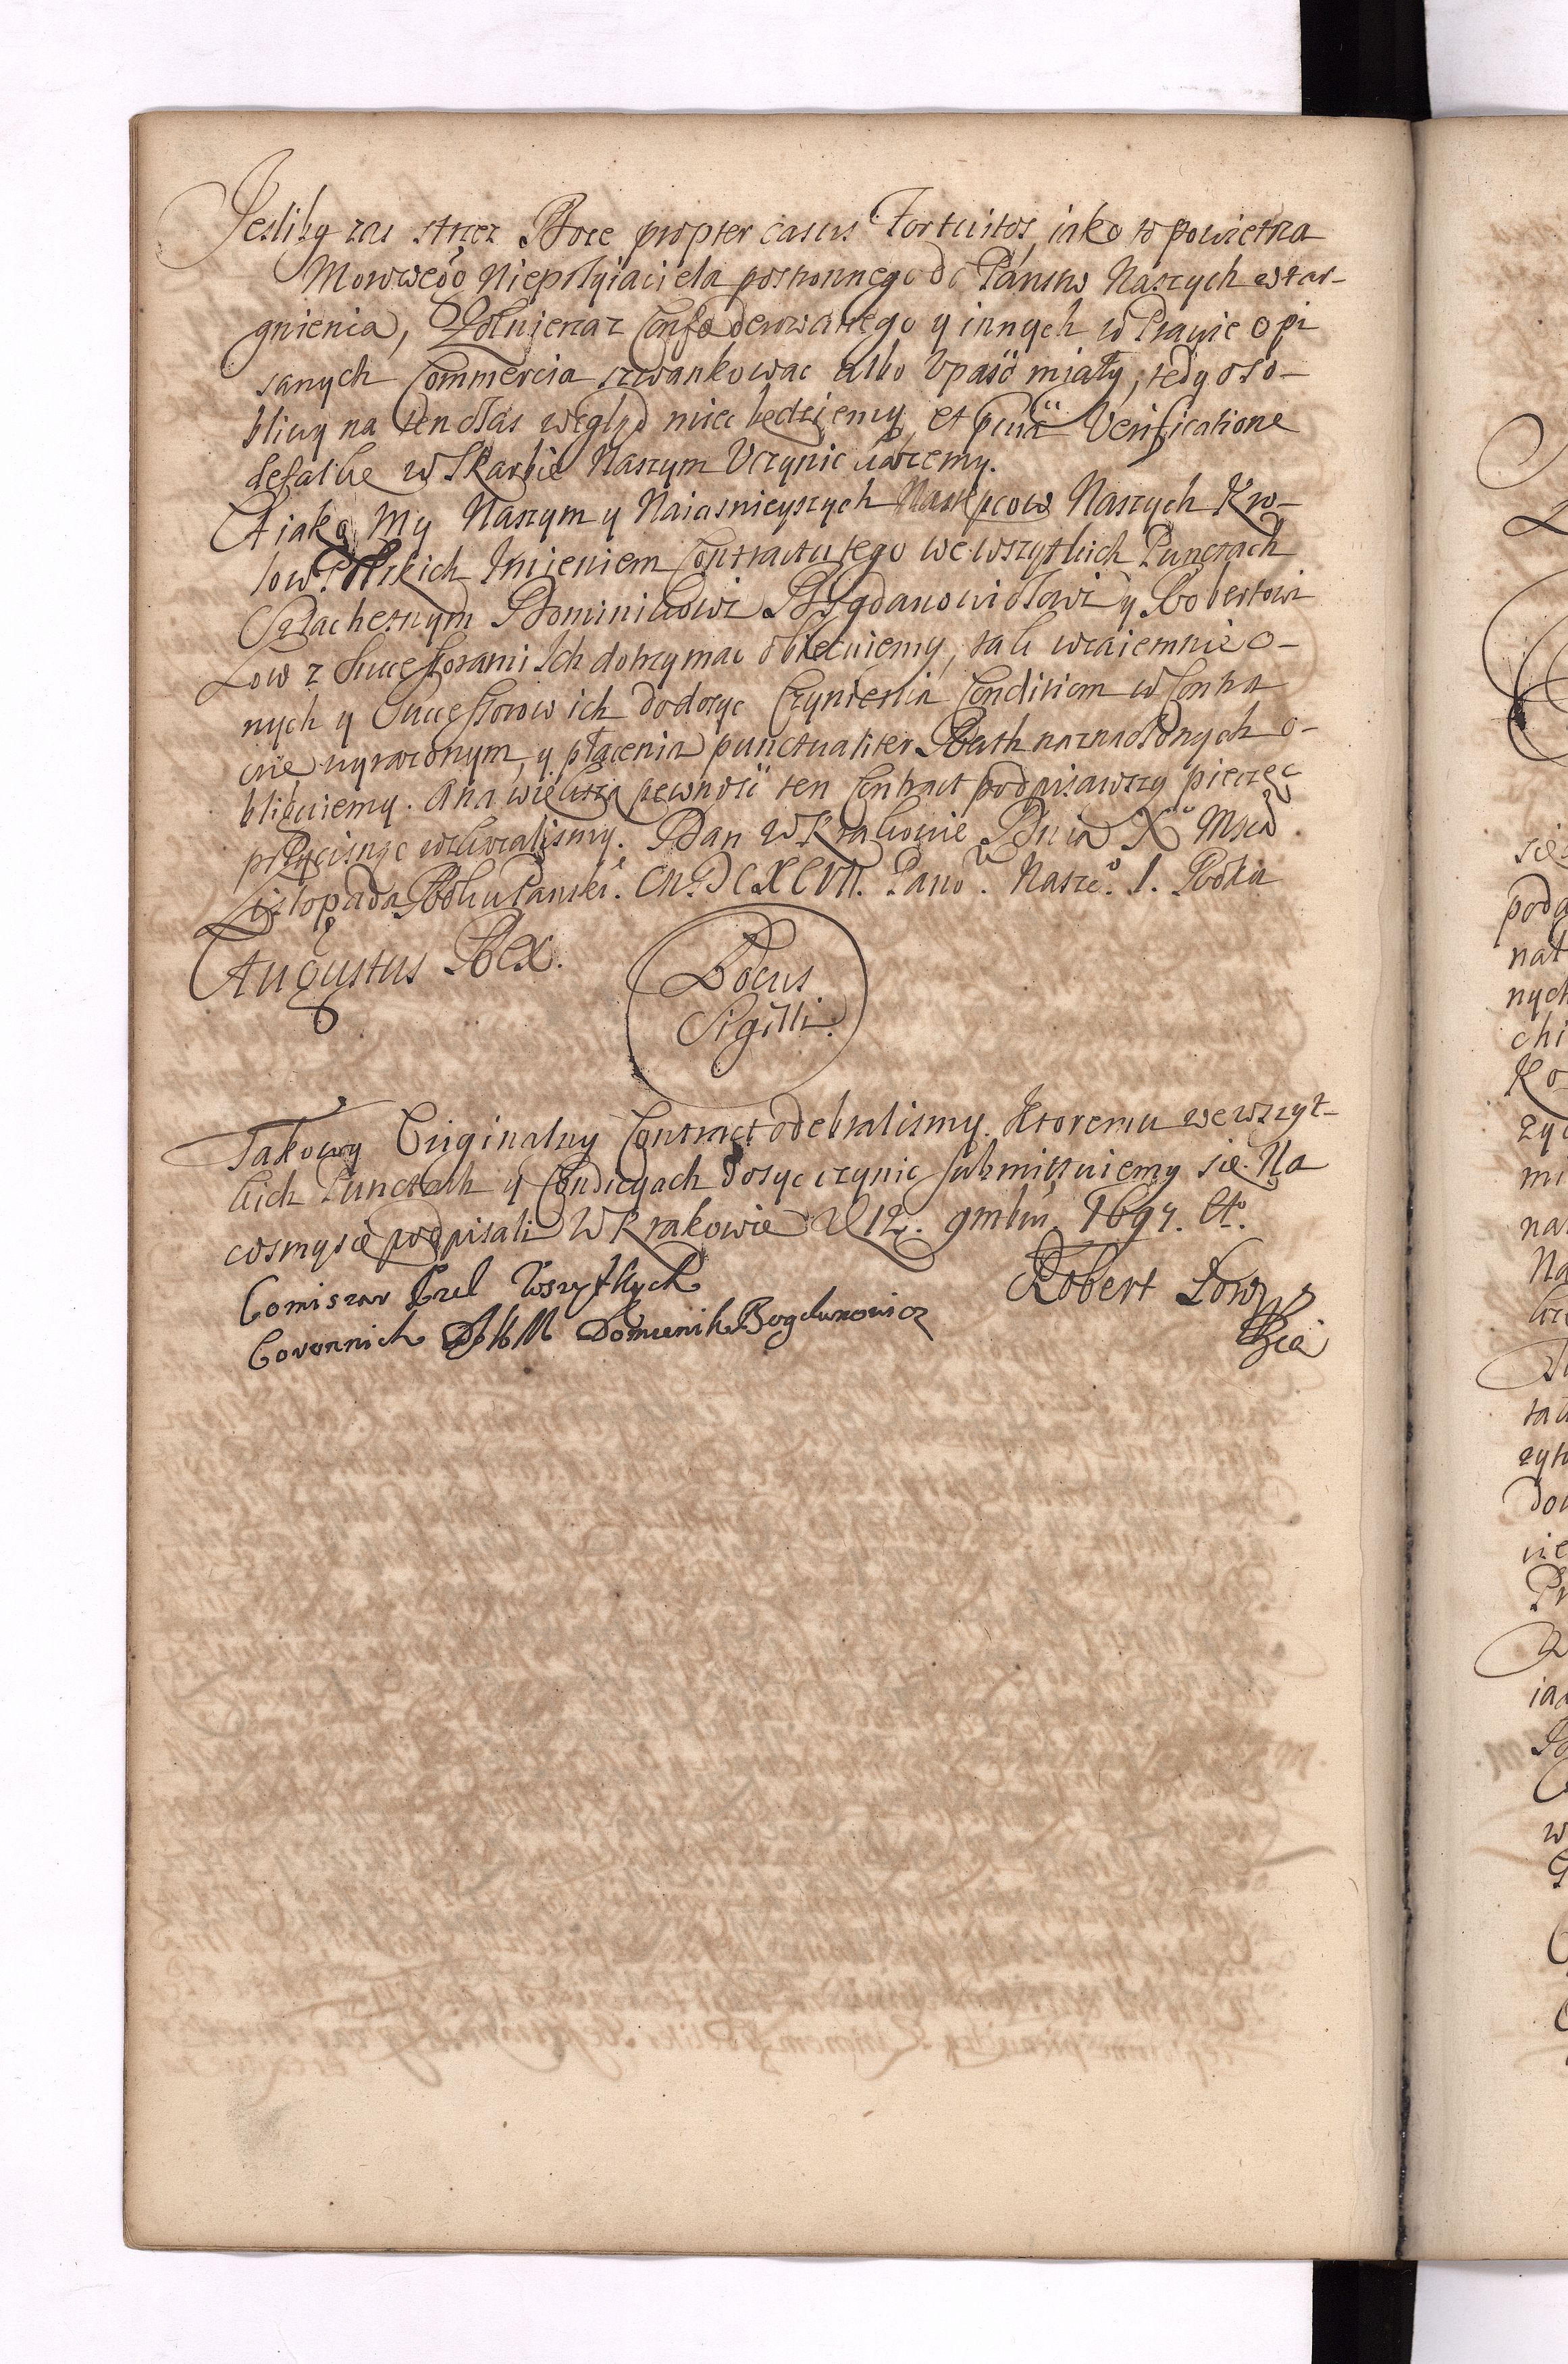 Jesliby zas strzez Boze propter casus Fortuitos, iako to powietrza
Morowego Nieprzyiaciela postronnego do Panstw Naszych wtar-
gnienia, Zołnierza z Confoederowanego y innych w Prawie opi
sanych Commercia szwankowac albo Upasć miały, tedy oso-
bliwy na ten czas wzgląd miec będziemy, et Verificatione
defalke w Skarbie Naszym Uczynic każemy.
A iako My Naszym y Naiasnieyszych Nastempcow Naszych Kro-
low Polskich Imieniem Contractu tego we wszytkich Punctach
Szlachetnym Dominikowi Bogdanowiczowi y Robertowi
Low z Successorami Ich dotrzymac obiecuiemy, tak wzaiemnie o-
nych y Successorow ich do dosyc Czynienia Conditiom w Contra
cie wyrazonym, y płacenia punctualiter Rath naznaczonych o-
bliguiemy. A na większą pewność ten Contract podpisawszy pieczęć
przycisnąc roskazalismy. Dan w Krakowie Dnia X Msca
Listopada Roku Panski. MDCXCVII. Panow. Nasze. I. Roku
Augustus Rex.
Locus
Sigilli.
Takowy Originalny Contract odebralismy. Ktoremu we wszyt-
kich Punctach y Condicyach dosyc czynic submittuiemy się. Na
cosmy się podpisali W Krakowie D 12. 9mbris 1697. Ao.
Comiszar Cel Wszytkych
Coronnich JKM Domienik Bogdanowicz
Robert Low